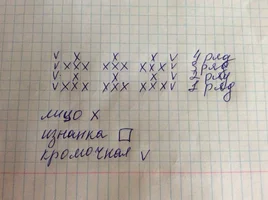 v x x x v 4 ряд
v x x x x x x x x x v 3 ряд
v x x x v 2 ряд
v x x x x x x x x x v 1 ряд
лицо x
изнанка □
кромочная v